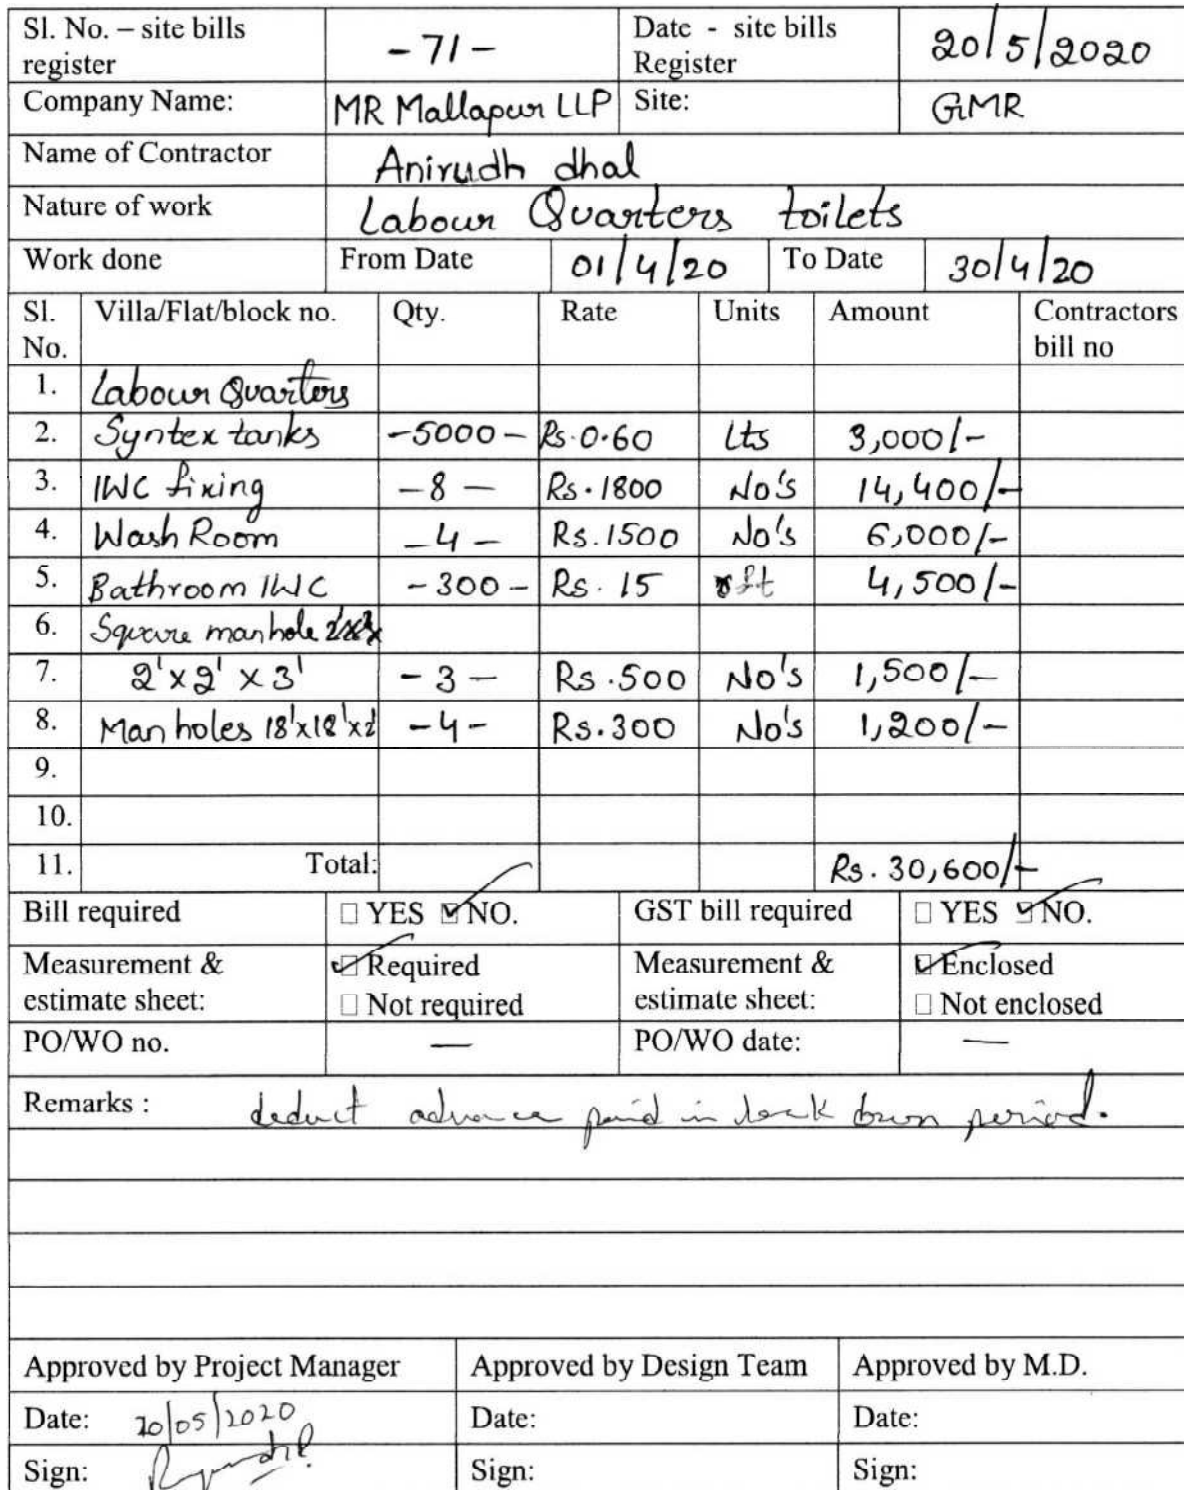 Sl. No. – site bills register -71- Date - site bills Register 20/5/2020
Company Name: MR Mallapur LLP Site: GMR
Name of Contractor Anirudh dhal
Nature of work Labour Quarters toilets
Work done From Date 01/4/20 To Date 30/4/20
Sl. No. Villa/Flat/block no. Qty. Rate Units Amount Contractors bill no
1. Labour Quarters
2. Syntex tanks -5000- Rs.0.60 Lts 3,000/-
3. IWC fixing -8- Rs.1800 No's 14,400/-
4. Wash Room -4- Rs.1500 No's 6,000/-
5. Bathroom IWC -300- Rs. 15 rft 4,500/-
6. Square manhole
7. 2'x2'x3' -3- Rs.500 No's 1,500/-
8. Man holes 18'x18'x2' -4- Rs.300 No's 1,200/-
9.
10.
11. Total: Rs. 30,600/-
Bill required □ YES ☑ NO. GST bill required □ YES ☑ NO.
Measurement & estimate sheet: ☑ Required □ Not required Measurement & estimate sheet: ☑ Enclosed □ Not enclosed
PO/WO no. — PO/WO date: —
Remarks : deduct advance paid in lock down period.
Approved by Project Manager Approved by Design Team Approved by M.D.
Date: 20/05/2020 Date: Date:
Sign: Sign: Sign: